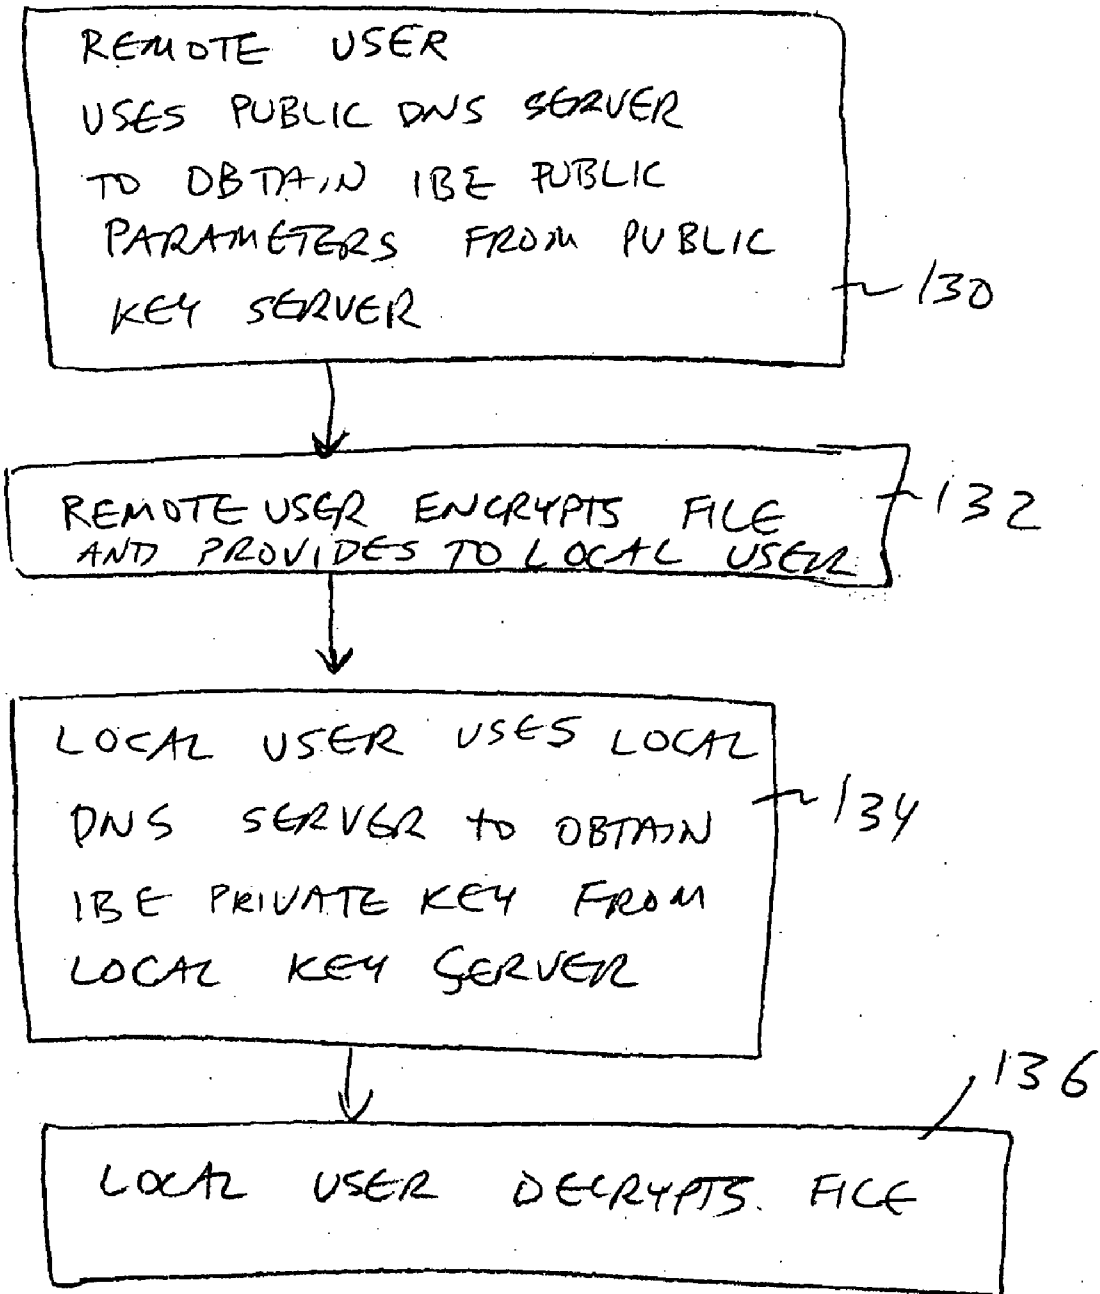 REMOTE USER
USES PUBLIC DNS SERVER
TO OBTAIN IBE PUBLIC
PARAMETERS FROM PUBLIC
KEY SERVER
130
REMOTE USER ENCRYPTS FILE
AND PROVIDES TO LOCAL USER
132
LOCAL USER USES LOCAL
DNS SERVER TO OBTAIN
IBE PRIVATE KEY FROM
LOCAL KEY SERVER
134
136
LOCAL USER DECRYPTS FILE